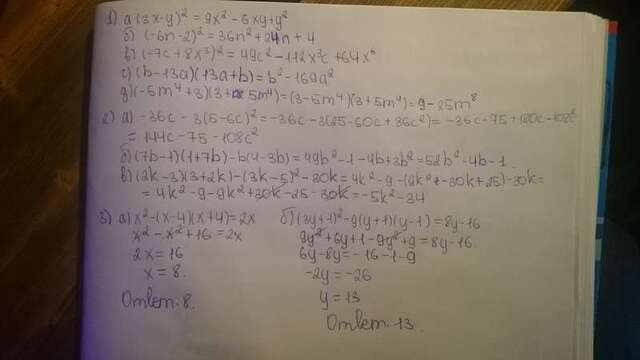 1) а) (3x-y)² = 9x² - 6xy + y²
б) (-6n-2)² = 36n² + 24n + 4
в) (-7c + 8x³)² = 49c² - 112x³c + 64x⁶
г) (b-13a)(13a+b) = b² - 169a²
д) (-5m⁴+3)(3+5m⁴) = (3-5m⁴)(3+5m⁴) = 9 - 25m⁸
2) а) -36c - 3(5-6c)² = -36c - 3(25-60c+36c²) = -36c - 75 + 180c - 108c²
= 144c - 75 - 108c²
б) (7b-1)(1+7b) - b(4-3b) = 49b² - 1 - 4b + 3b² = 52b² - 4b - 1
в) (2k-3)(3+2k) - (3k-5)² - 30k = 4k² - 9 - (9k² - 30k + 25) - 30k =
= 4k² - 9 - 9k² + 30k - 25 - 30k = -5k² - 34
3) а) x² - (x-4)(x+4) = 2x
x² - x² + 16 = 2x
2x = 16
x = 8.
Ответ: 8.
б) (3y+1)² - 9(y+1)(y-1) = 8y - 16
9y² + 6y + 1 - 9y² + 9 = 8y - 16
6y - 8y = -16 - 1 - 9
-2y = -26
y = 13
Ответ: 13